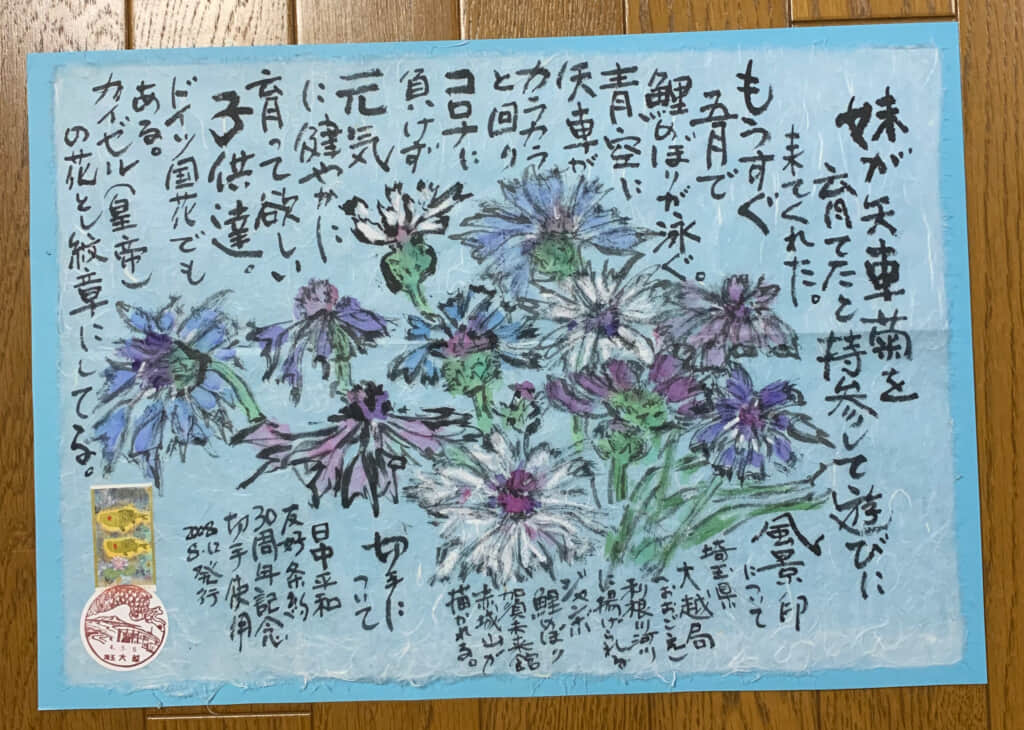 妹が矢車菊を
育てたと持参して遊びに
来てくれた。
もうすぐ
五月で
鯉のぼりが泳ぐ。
青空に
矢車が
カラカラ
と回り
コロナに
負けず
元気
に健やかに
育って欲しい
子供達。
ドイツ国花でも
ある。
カイゼル(皇帝)
の花とし紋章にしてる。
風景印
について
埼玉県
大越局
(おおごえ)
利根川河川
に揚げられる
ジャンボ
鯉のぼり
賀未来館
赤城山が
描かれる。
切手に
ついて
日中平和
友好条約
30周年記念
切手使用
2008.12
8.発行
4.5.5
埼玉大越